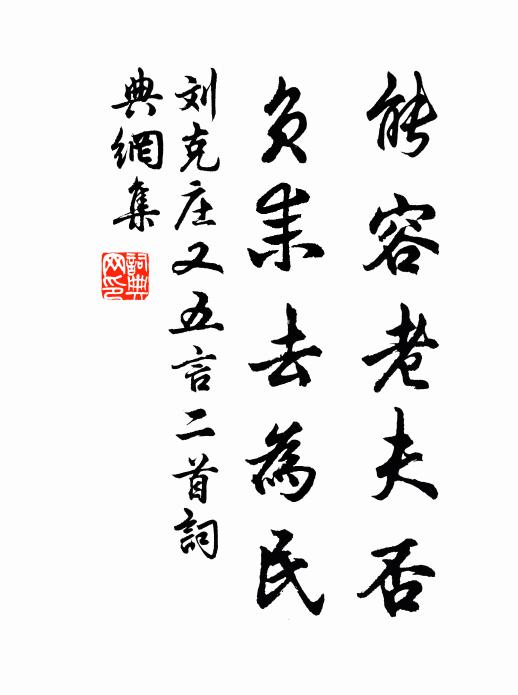 能容老夫否
负耒去為民
刘克庄又五言二首詞
典網集
詞典网印